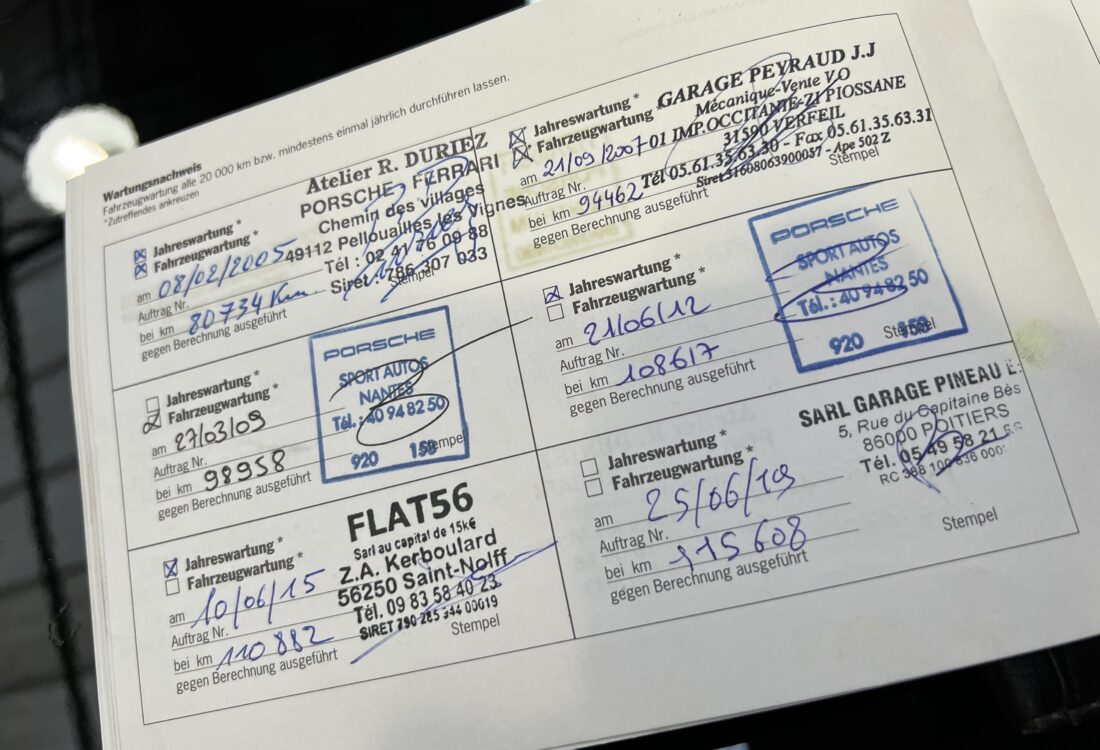 Wartungsnachweis
Fahrzeugwartung alle 20 000 km bzw. mindestens einmal jährlich durchführen lassen.
*Zutreffendes ankreuzen
Jahreswartung *
Fahrzeugwartung *
am 08/02/2005
Auftrag Nr.
bei km 80734 Km
gegen Berechnung ausgeführt
Atelier R. DURIEZ
PORSCHE FERRARI
Chemin des villages
49112 Pellouailles les Vignes
Tél : 02 41 76 09 88
Siret : 786 307 033
Stempel
Jahreswartung *
Fahrzeugwartung *
am 21/09/2007
Auftrag Nr.
bei km 94462
gegen Berechnung ausgeführt
GARAGE PEYRAUD J.J
Mécanique-Vente V.O
01 IMP.OCCITANTE-ZI PIOSSANE
31590 VERFEIL
Tél 05.61.35.63.30 - Fax 05.61.35.63.31
Siret31608063900037 - Ape 502 Z
Stempel
Jahreswartung *
Fahrzeugwartung *
am 27/03/09
Auftrag Nr.
bei km 98958
gegen Berechnung ausgeführt
PORSCHE
SPORT AUTOS
NANTES
Tél.: 40 94 82 50
Stempel
920 158
Jahreswartung *
Fahrzeugwartung *
am 21/06/12
Auftrag Nr.
bei km 108617
gegen Berechnung ausgeführt
PORSCHE
SPORT AUTOS
NANTES
Tél.: 40 94 82 50
Stempel
920 158
Jahreswartung *
Fahrzeugwartung *
am 10/06/15
Auftrag Nr.
bei km 110882
gegen Berechnung ausgeführt
FLAT56
Sarl au capital de 15k€
Z.A. Kerboulard
56250 Saint-Nolff
Tél. 09 83 58 40 23
SIRET 790 285 344 00019
Stempel
Jahreswartung *
Fahrzeugwartung *
am 25/06/19
Auftrag Nr.
bei km 115608
gegen Berechnung ausgeführt
SARL GARAGE PINEAU
5, Rue du Capitaine Bès
86000 POITIERS
Tél. 05 49 58 21
RC 388 100
Stempel